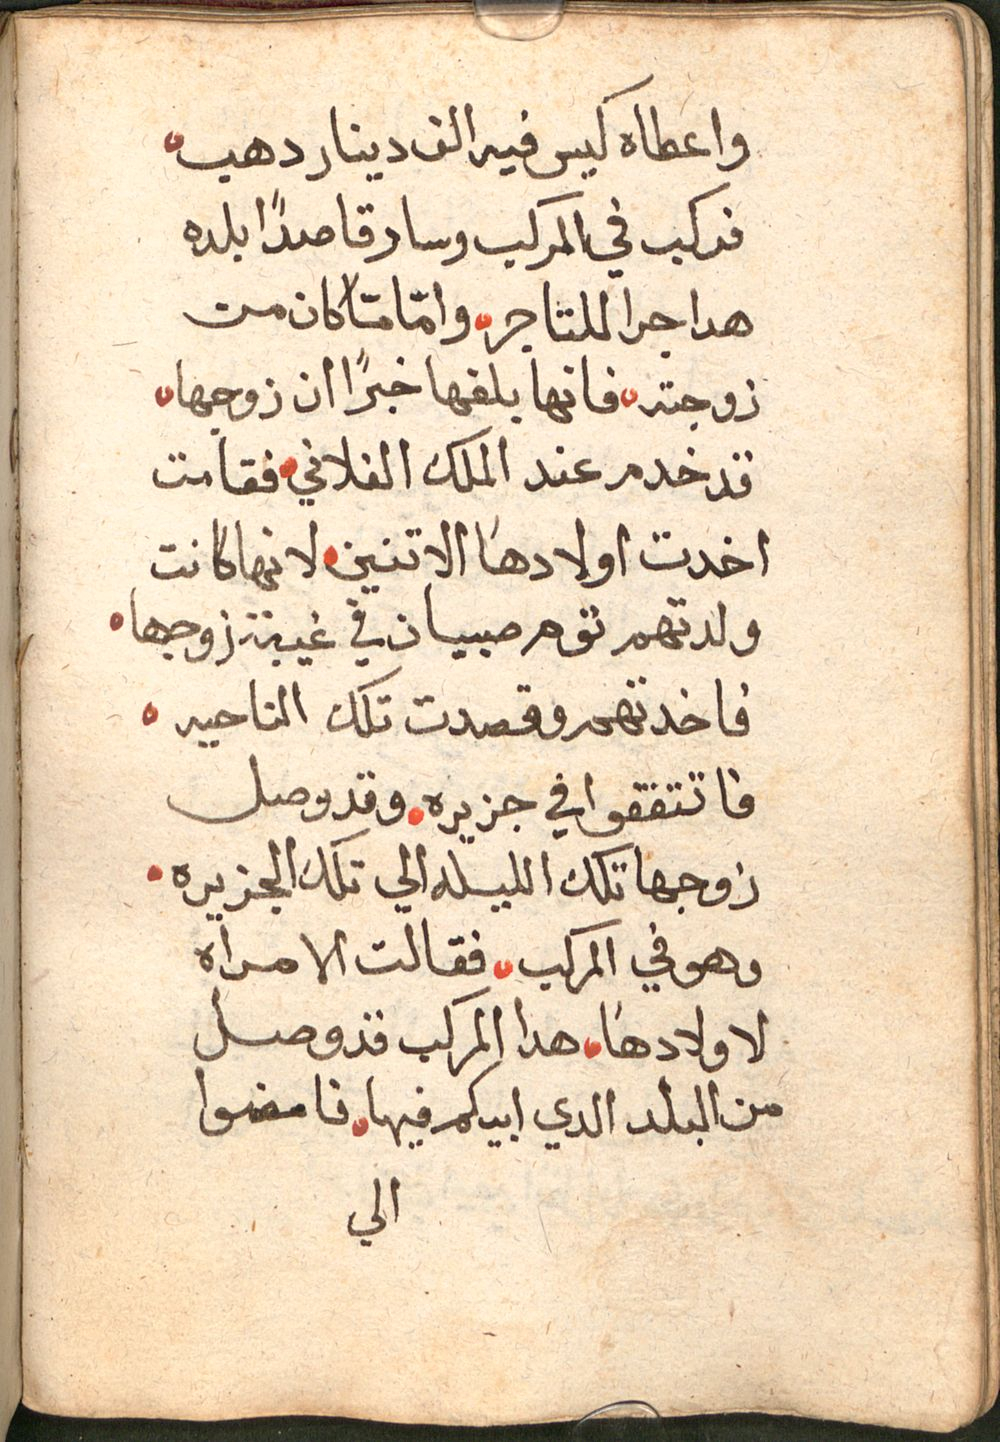 واعطاه كيس فيه الف دينار دهب
فركب في المركب وسار قاصدًا بلده
هدا جرا للتاجر وامّا ما كان من
زوجته فانها بلغها خبرًا ان زوجها
قد خدم عند الملك الفلاني فقامت
اخدت اولادها الاتنين لانها كانت
ولدتهم توم صبيان في غيبة زوجها
فاخدتهم وقصدت تلك الناحيه
فاتتفقوا في جزيره وقد وصل
زوجها تلك الليله الي تلك الجزيره
وهو في المركب فقالت الامراه
لاولادها هدا المركب قد وصل
من البلد الدي ابيكم فيها فامضوا
الي